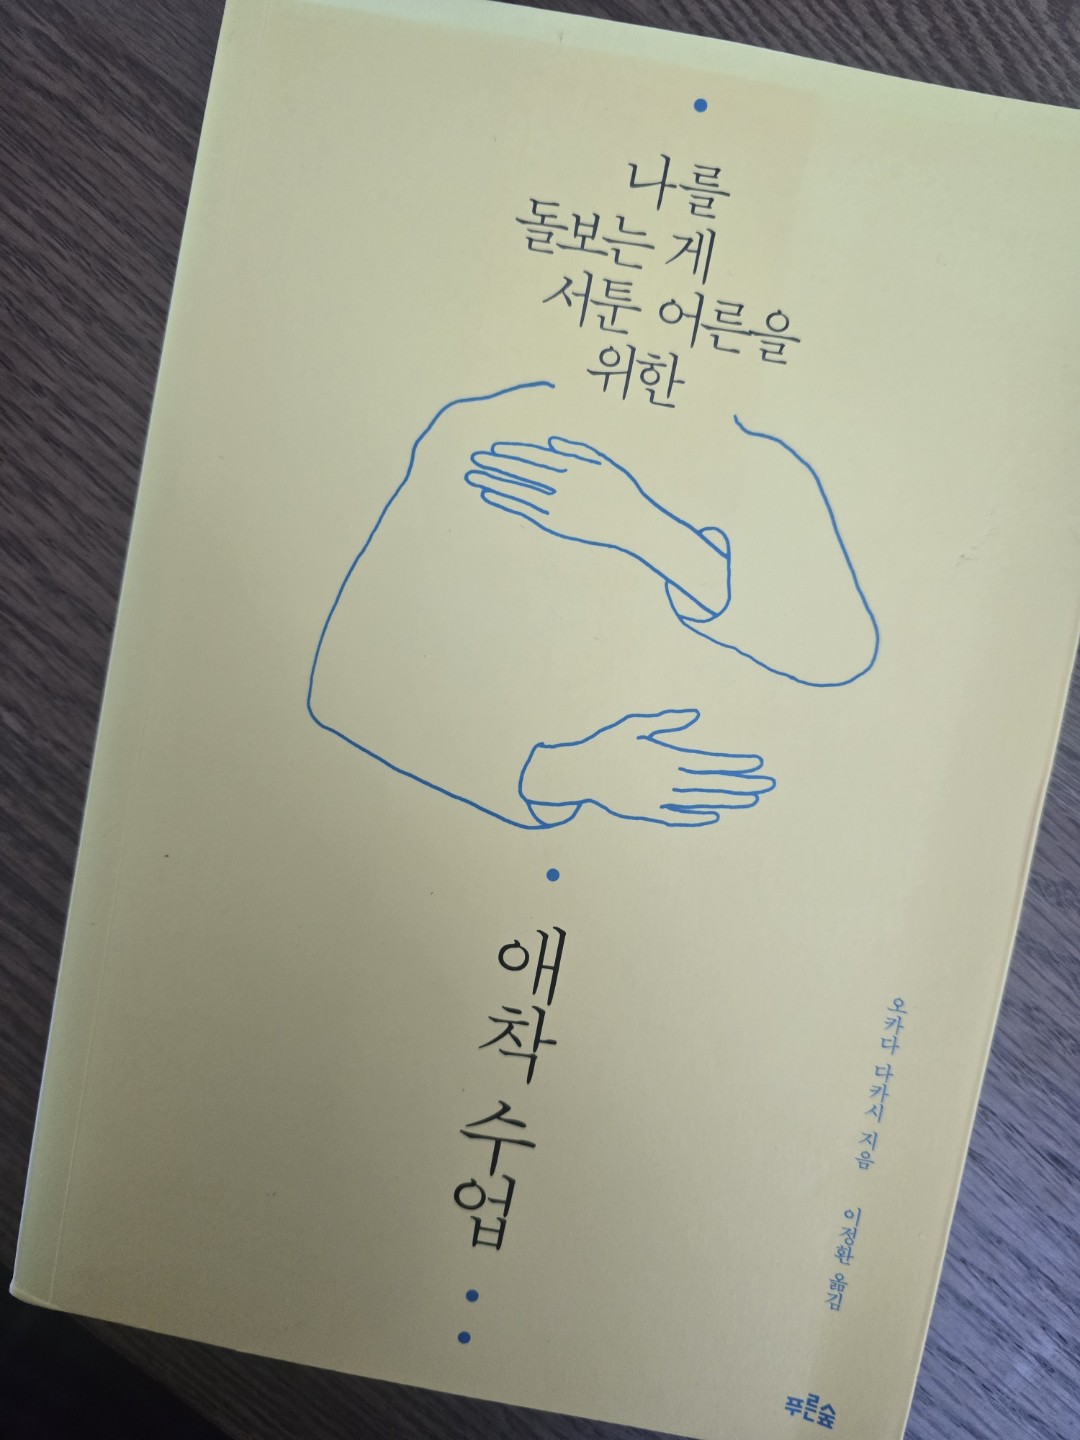 나를
돌보는 게
서툰 어른을
위한
애착 수업
오카다 다카시 지음
이정환 옮김
푸른숲